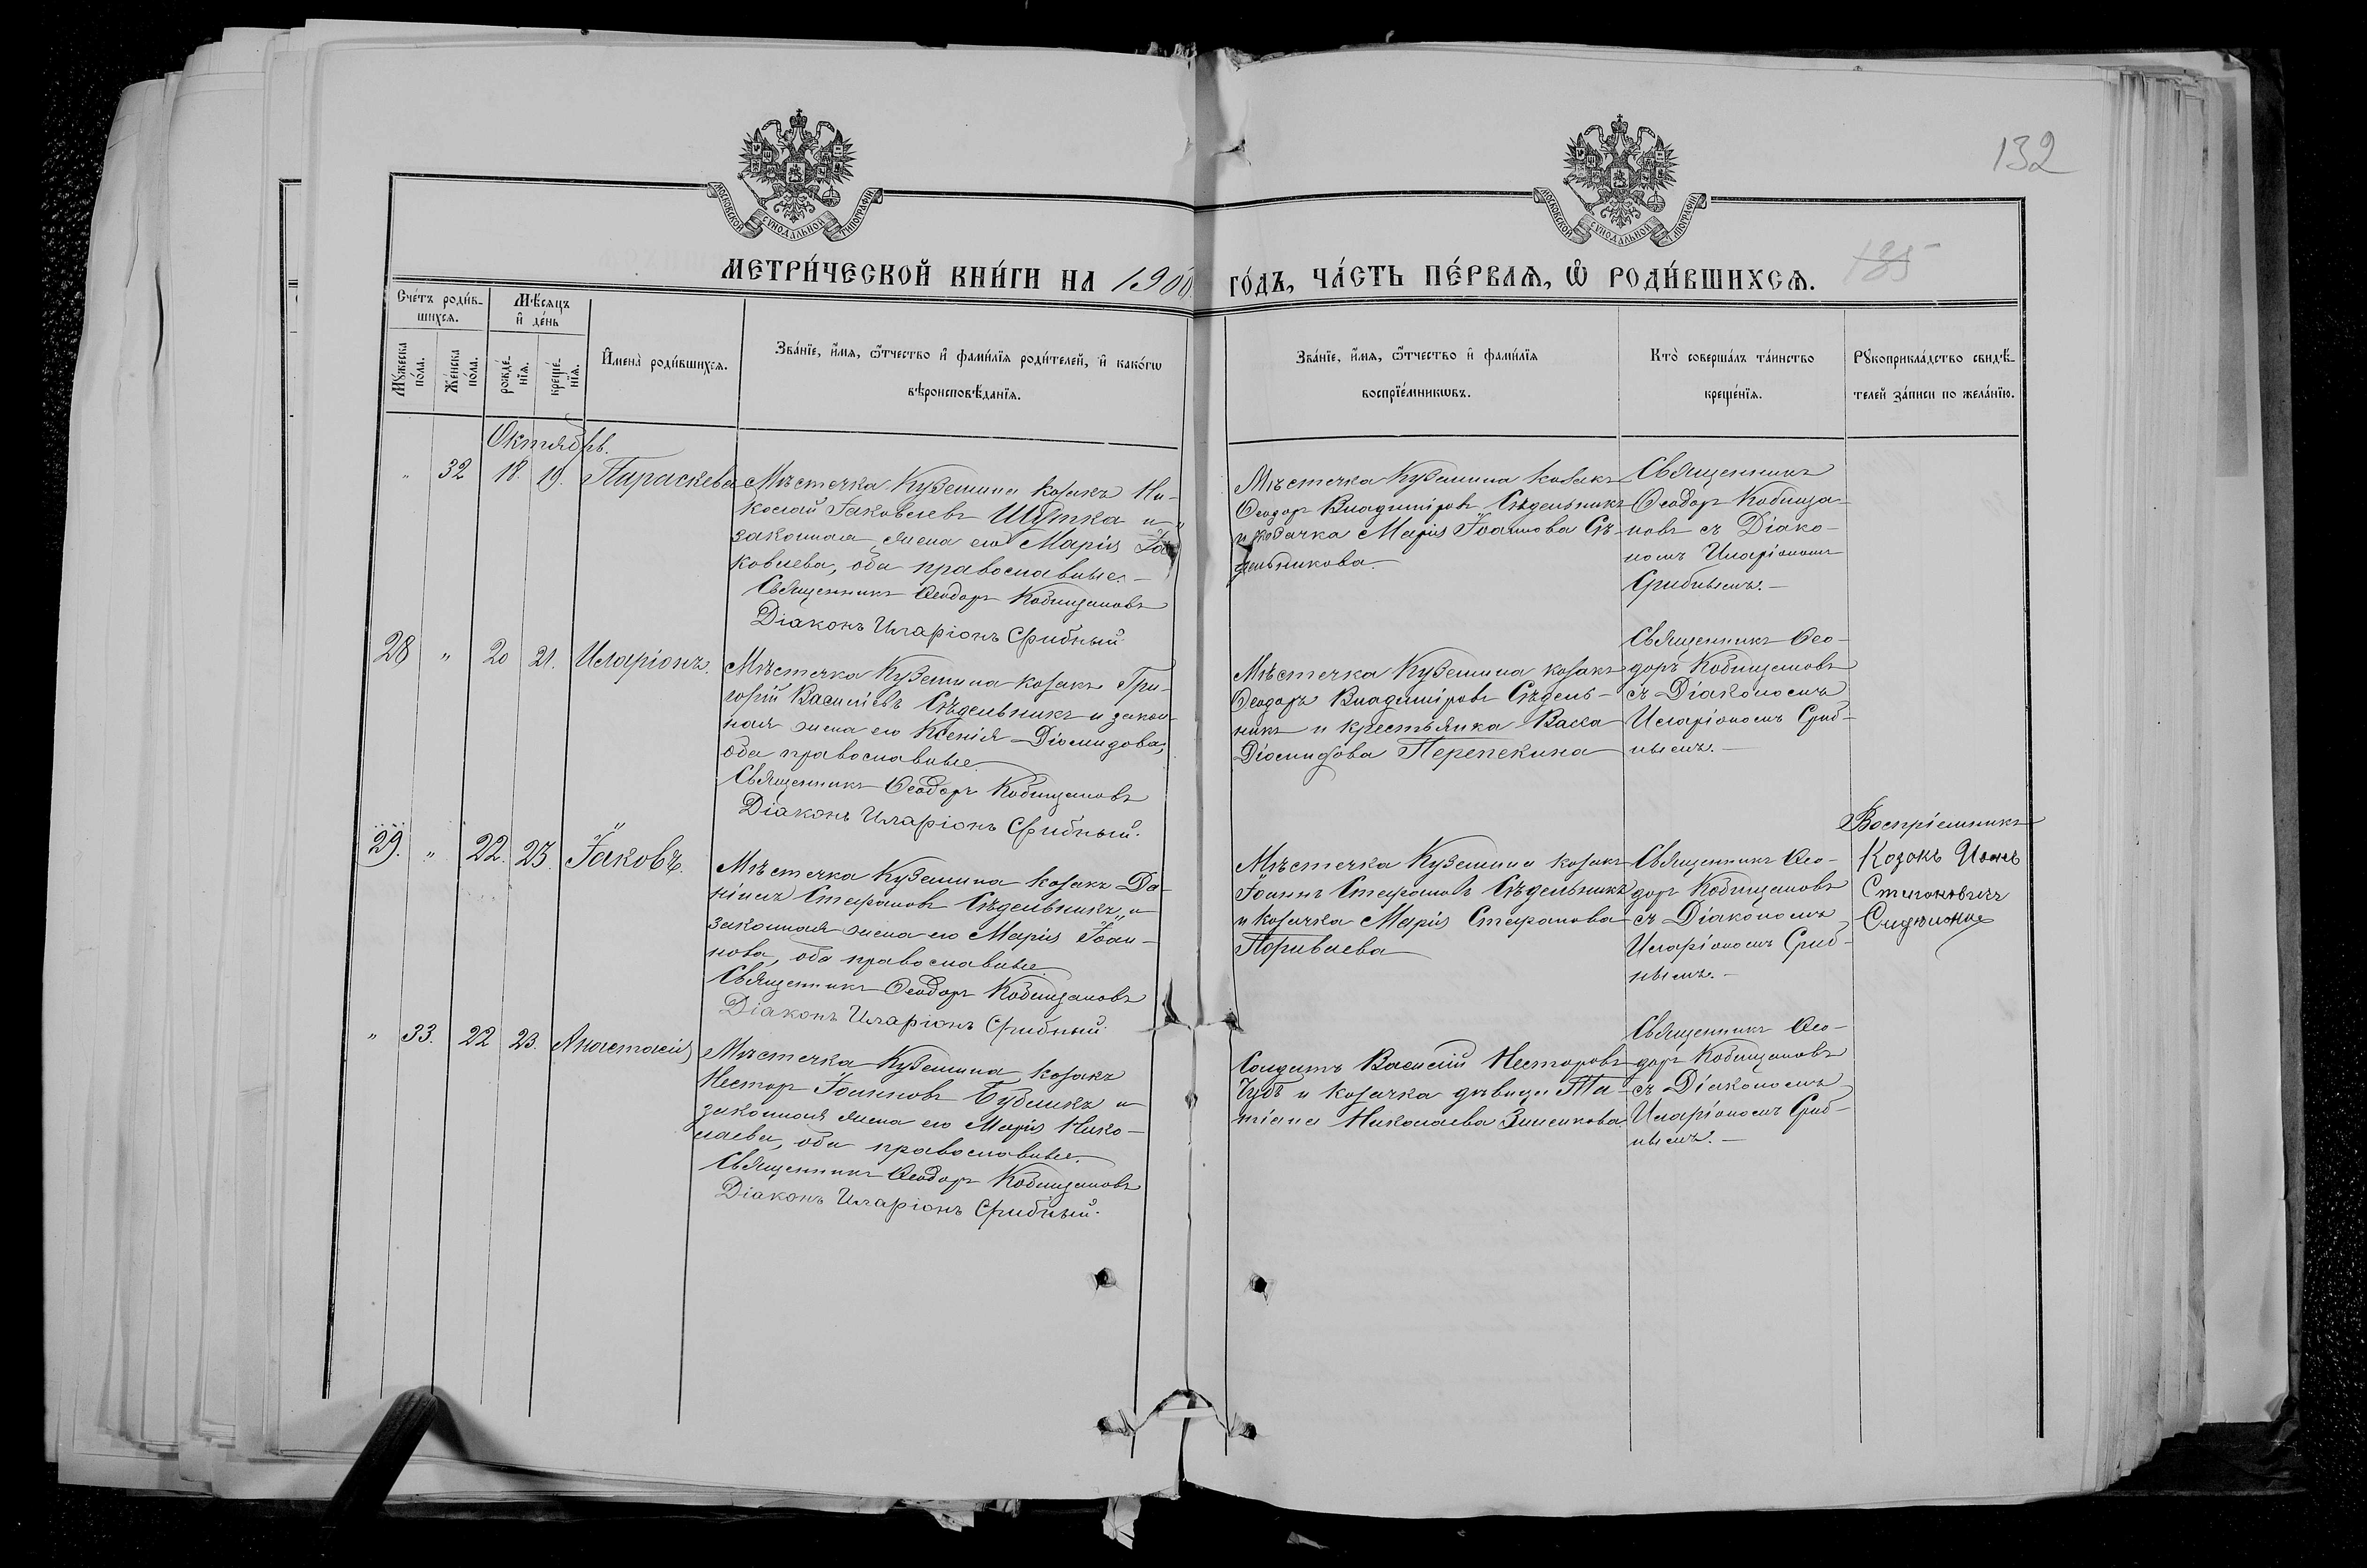 132
МОСКОВСКОЙ СУНОДАЛЬНОЙ ТИПОГРАФІИ
МОСКОВСКОЙ СУНОДАЛЬНОЙ ТИПОГРАФІИ
МЕТРИ́ЧЕСКОЙ КНИ́ГИ НА 1900 ГО́ДЪ, ЧА́СТЬ ПЕ́РВАѦ, Ѡ РОДИ́ВШИХСѦ.
185
Сче́тъ роди́в-
шихсѧ.
Мꙋ́жеска
по́ла.
Же́нска
по́ла.
Мѣ́сѧцъ
и҆ де́нь
рожде́-
нїѧ.
креще́-
нїѧ.
И҆мена̀ роди́вшихсѧ.
Зва́нїе, и҆́мѧ, ѻ҆́тчество и҆ фами́лїѧ роди́телей, и҆ како́гѡ
вѣроисповѣ́данїѧ.
Зва́нїе, и҆́мѧ, ѻ҆́тчество и҆ фами́лїѧ
воспрїе́мникѡвъ.
Кто̀ соверша́лъ та́инство
креще́нїѧ.
Рꙋкоприкла́дство свидѣ́-
телей за́писи по жела́нїю.
Октябрь.
" 32 18. 19. Параскева
Мѣстечка Куземина козакъ Ни-
колай Іаковлевъ Шутка и
законная жена его Марія Іа-
ковлева, оба православные.-
Священникъ Ѳеодоръ Кобищановъ
Діаконъ Иларіонъ Срибный
Мѣстечка Куземина козакъ
Ѳеодоръ Владиміровъ Сѣдельникъ
и козачка Марія Іоаннова Сѣ-
дельникова.
Священникъ
Ѳеодоръ Кобища-
новъ съ Діако-
номъ Иларіономъ
Срибнымъ.-
28 " 20 21. Иларіонъ.
Мѣстечка Куземина козакъ Гри-
горій Василіевъ Сѣдельникъ и закон-
ная жена его Ксенія Діомидова,
оба православные
Священникъ Ѳеодоръ Кобищановъ
Діаконъ Иларіонъ Срибный.
Мѣстечка Куземина козакъ
Ѳеодоръ Владиміровъ Сѣдель-
никъ и крестьянка Васса
Діомидова Перепекина
Священникъ Ѳео-
доръ Кобищановъ
съ Діакономъ
Иларіономъ Сриб-
нымъ.-
29. " 22. 23. Іаковъ.
Мѣстечка Куземина козакъ Да-
ніилъ Стефановъ Сѣдельникъ и
законная жена его Марія Іоан-
нова, оба православные.
Священникъ Ѳеодоръ Кобищановъ
Діаконъ Иларіонъ Срибный
Мѣстечка Куземина козакъ
Іоаннъ Стефановъ Сѣдельникъ
и козачка Марія Стефанова
Пориваева
Священникъ Ѳео-
доръ Кобищановъ
съ Діакономъ
Иларіономъ Сриб-
нымъ.-
Воспріемникъ
Козакъ
" 33. 22 23. Анастасія
Мѣстечка Куземина козакъ
Несторъ Іоанновъ Бубликъ и
законная жена его Марія Нико-
лаева, оба православные.
Священникъ Ѳеодоръ Кобищановъ
Діаконъ Иларіонъ Срибный.
Солдатъ Василій Несторовъ
Чубъ и козачка дѣвица Та-
тіана Николаева
Священникъ Ѳео-
доръ Кобищановъ
съ Діакономъ
Иларіономъ Сриб-
нымъ.-